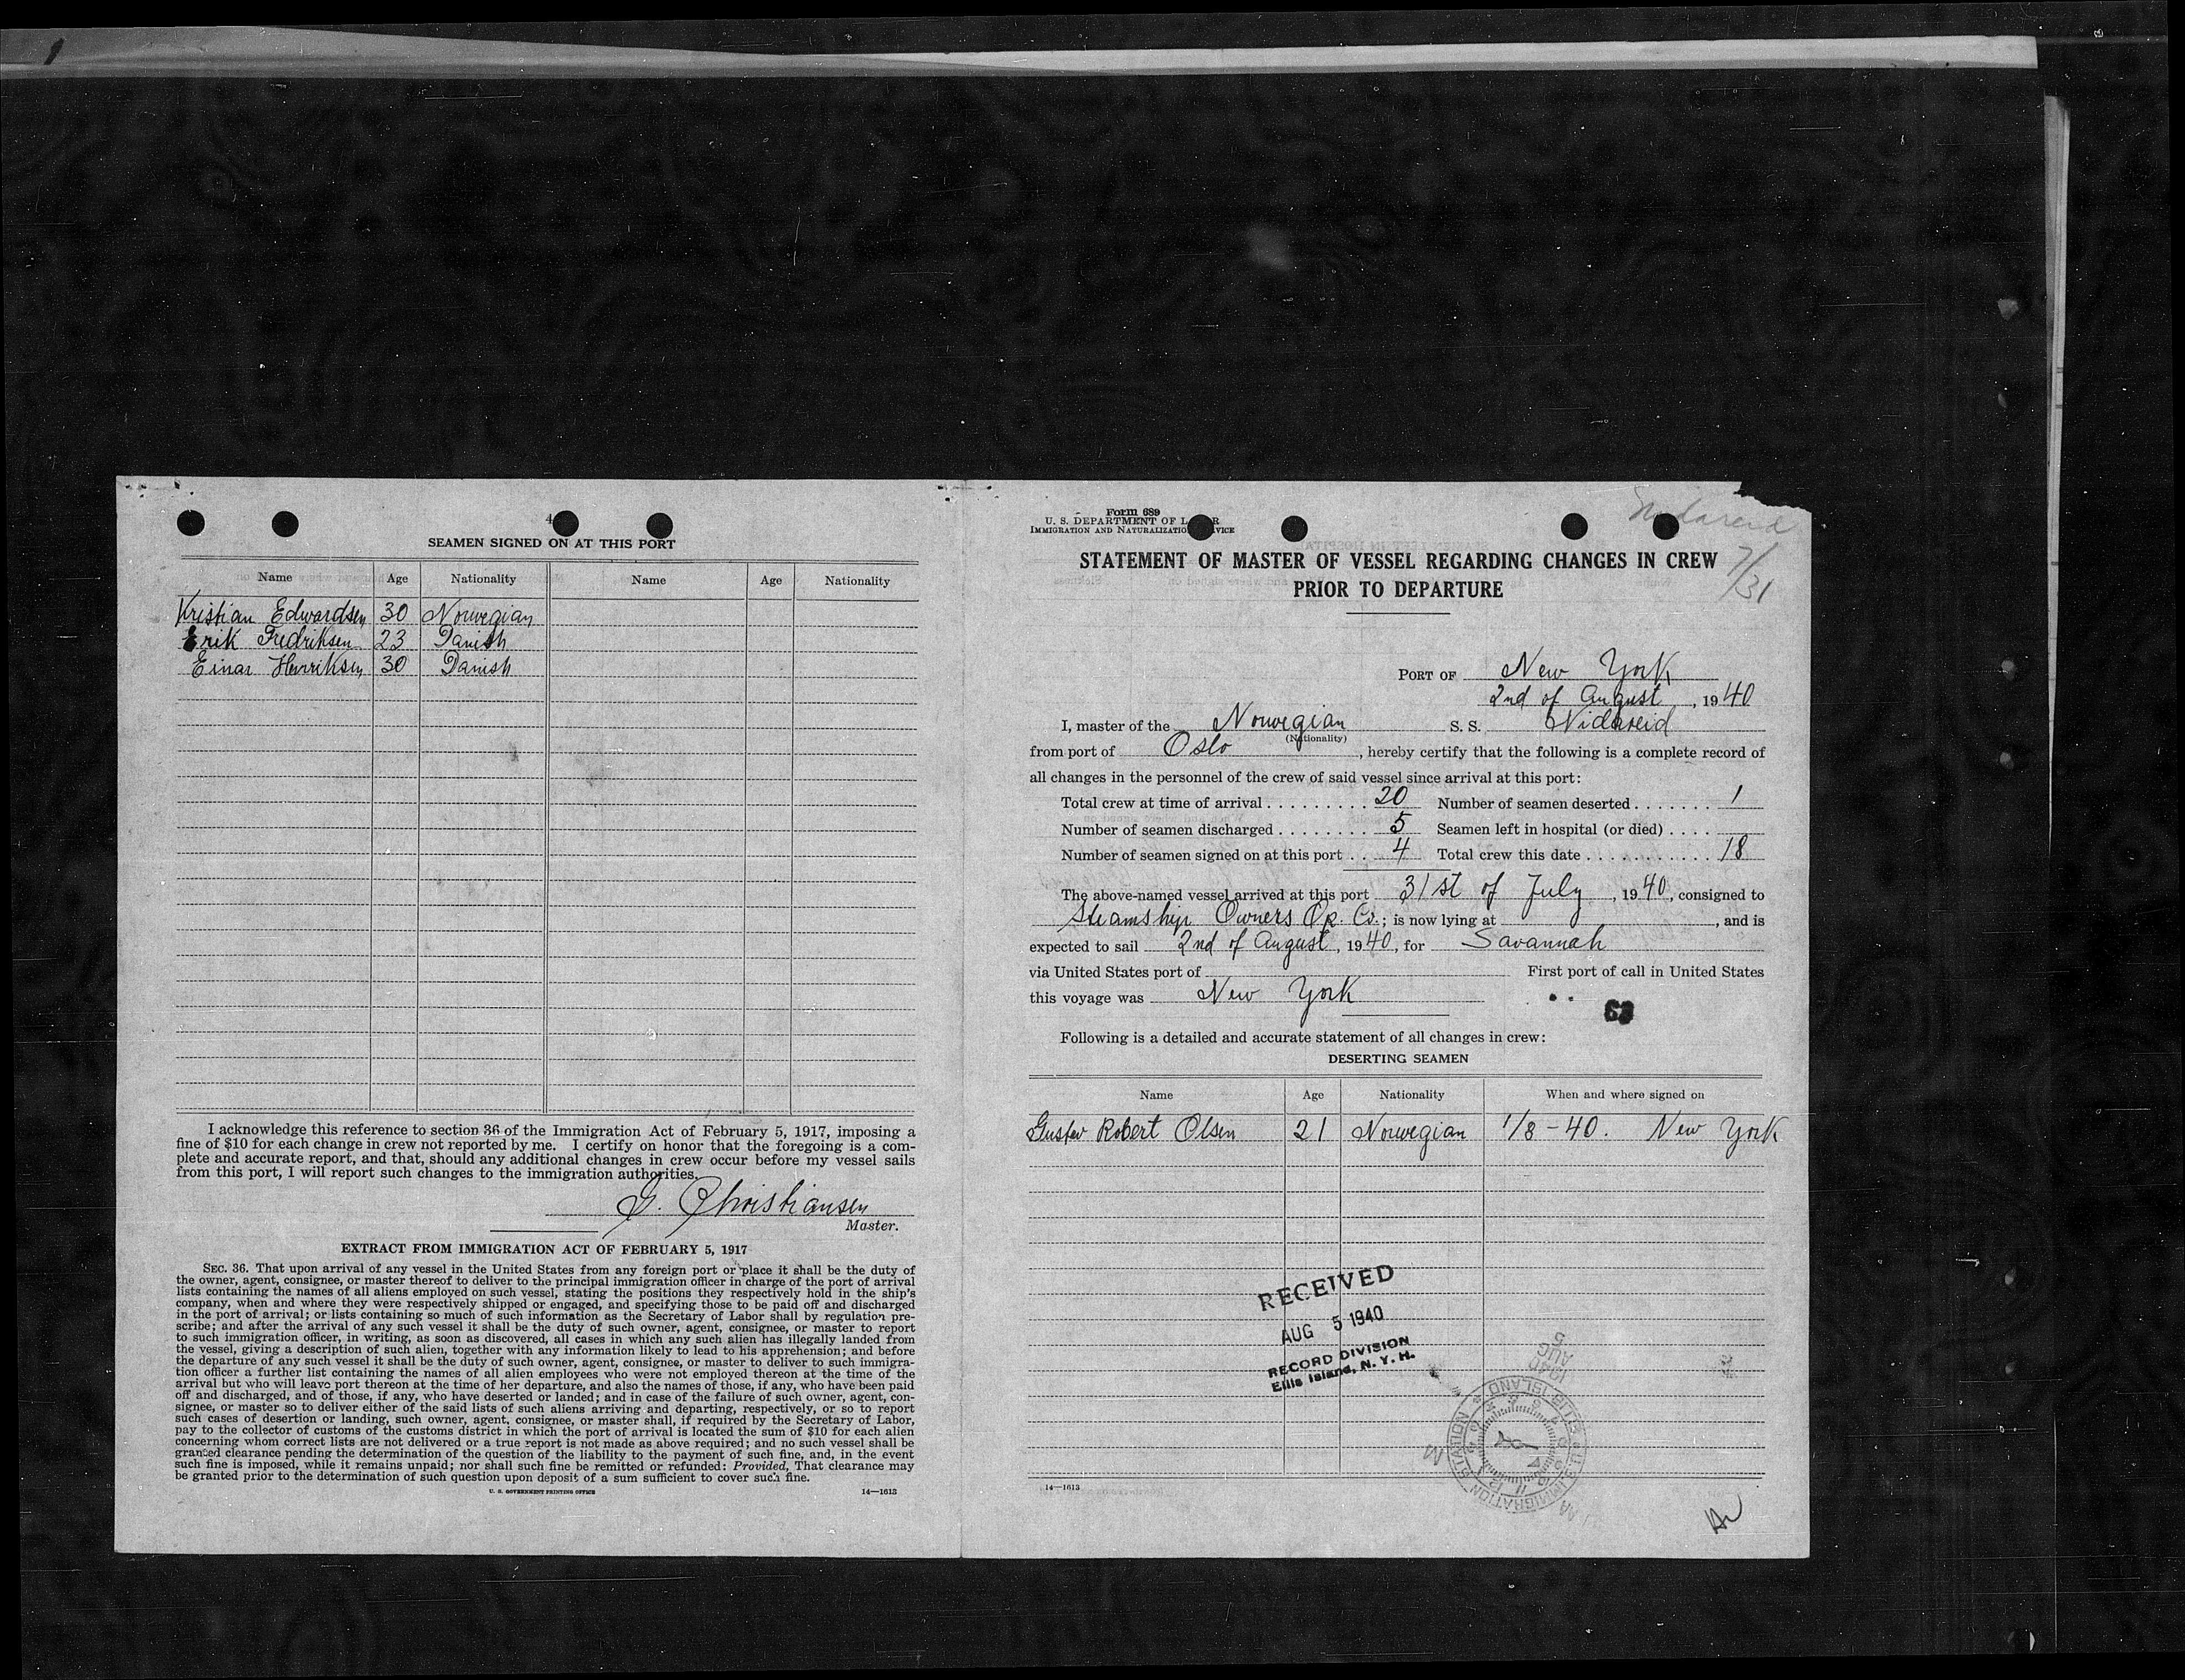 4
SEAMEN SIGNED ON AT THIS PORT
Name Age Nationality Name Age Nationality
Kristian Edwardsen 30 Norwegian
Erik Fredriksen 23 Danish
Einar Henriksen 30 Danish
I acknowledge this reference to section 36 of the Immigration Act of February 5, 1917, imposing a
fine of $10 for each change in crew not reported by me. I certify on honor that the foregoing is a com-
plete and accurate report, and that, should any additional changes in crew occur before my vessel sails
from this port, I will report such changes to the immigration authorities.
G. Christiansen
Master.
EXTRACT FROM IMMIGRATION ACT OF FEBRUARY 5, 1917
SEC. 36. That upon arrival of any vessel in the United States from any foreign port or place it shall be the duty of
the owner, agent, consignee, or master thereof to deliver to the principal immigration officer in charge of the port of arrival
lists containing the names of all aliens employed on such vessel, stating the positions they respectively hold in the ship's
company, when and where they were respectively shipped or engaged, and specifying those to be paid off and discharged
in the port of arrival; or lists containing so much of such information as the Secretary of Labor shall by regulation pre-
scribe; and after the arrival of any such vessel it shall be the duty of such owner, agent, consignee, or master to report
to such immigration officer, in writing, as soon as discovered, all cases in which any such alien has illegally landed from
the vessel, giving a description of such alien, together with any information likely to lead to his apprehension; and before
the departure of any such vessel it shall be the duty of such owner, agent, consignee, or master to deliver to such immigra-
tion officer a further list containing the names of all alien employees who were not employed thereon at the time of the
arrival but who will leave port thereon at the time of her departure, and also the names of those, if any, who have been paid
off and discharged, and of those, if any, who have deserted or landed; and in case of the failure of such owner, agent, con-
signee, or master so to deliver either of the said lists of such aliens arriving and departing, respectively, or so to report
such cases of desertion or landing, such owner, agent, consignee, or master shall, if required by the Secretary of Labor,
pay to the collector of customs of the customs district in which the port of arrival is located the sum of $10 for each alien
concerning whom correct lists are not delivered or a true report is not made as above required; and no such vessel shall be
granted clearance pending the determination of the question of the liability to the payment of such fine, and, in the event
such fine is imposed, while it remains unpaid; nor shall such fine be remitted or refunded: Provided, That clearance may
be granted prior to the determination of such question upon deposit of a sum sufficient to cover such fine.
U. S. GOVERNMENT PRINTING OFFICE 14—1613
Form 689
U. S. DEPARTMENT OF LABOR
IMMIGRATION AND NATURALIZATION SERVICE
Nidareid
7/31
STATEMENT OF MASTER OF VESSEL REGARDING CHANGES IN CREW
PRIOR TO DEPARTURE
PORT OF New York
2nd of August, 1940
I, master of the Norwegian S. S. Nidareid
(Nationality)
from port of Oslo, hereby certify that the following is a complete record of
all changes in the personnel of the crew of said vessel since arrival at this port:
Total crew at time of arrival . . . . . . . . . 20 Number of seamen deserted . . . . . . . 1
Number of seamen discharged . . . . . . . . 5 Seamen left in hospital (or died) . . . .
Number of seamen signed on at this port . . 4 Total crew this date . . . . . . . . . . . . 18
The above-named vessel arrived at this port 31st of July, 1940, consigned to
Steamship Owners Op. Co.; is now lying at , and is
expected to sail 2nd of August, 1940, for Savannah
via United States port of First port of call in United States
this voyage was New York
63
Following is a detailed and accurate statement of all changes in crew:
DESERTING SEAMEN
Name Age Nationality When and where signed on
Gustav Robert Olsen 21 Norwegian 1/8-40. New York
RECEIVED
AUG 5 1940
RECORD DIVISION
Ellis Island, N. Y. H.
1940
AUG 5
U.S. IMMIGRATION STATION ELLIS ISLAND
14—1613